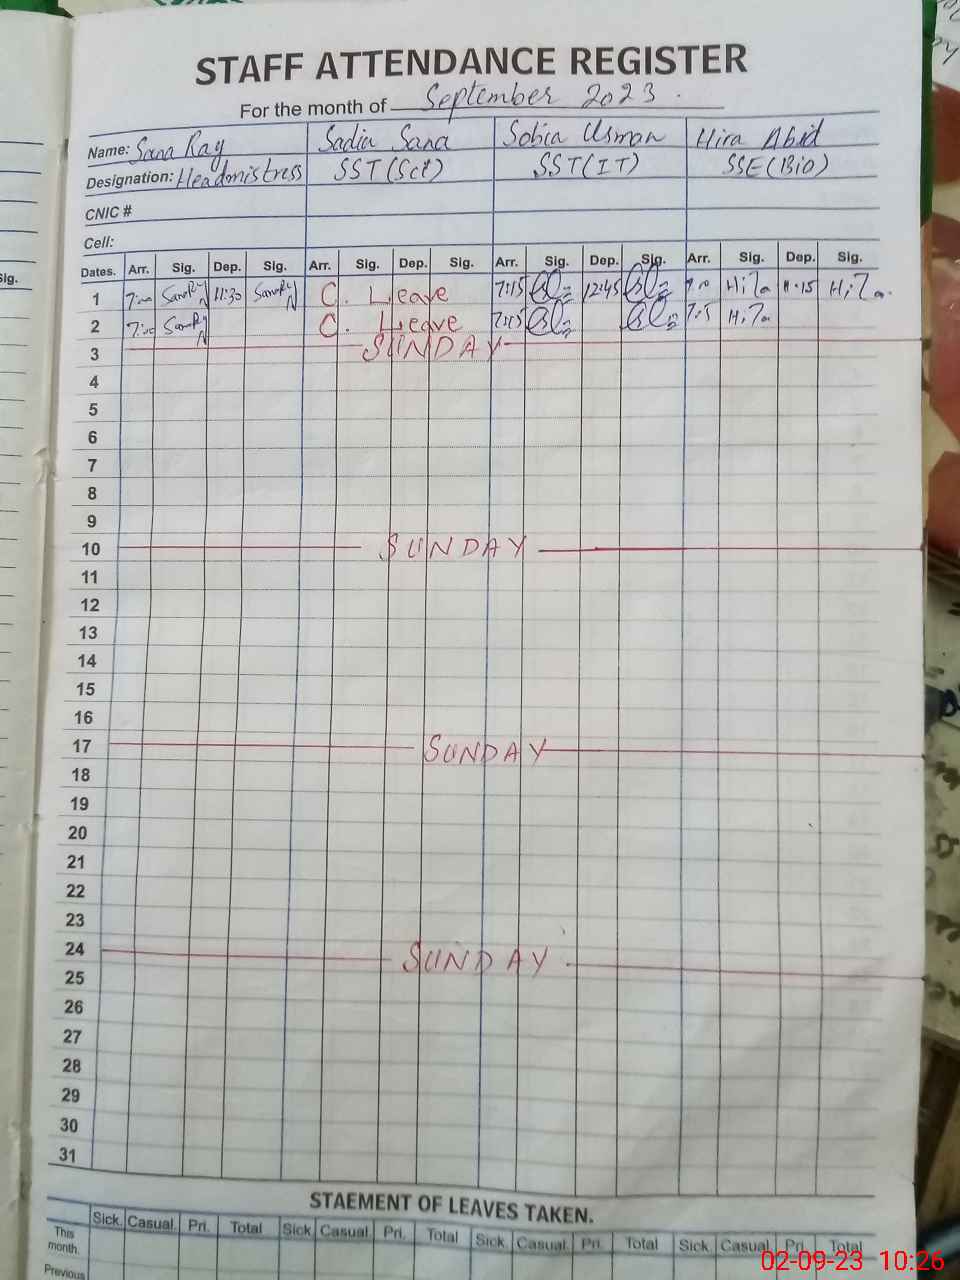 STAFF ATTENDANCE REGISTER
For the month of September 2023.
Name: Sana Ray Sadia Sana Sobia Usman Hira Abid
Designation: Headmistress SST(Sci) SST(IT) SSE(Bio)
CNIC #
Cell:
Sig.
Dates. Arr. Sig. Dep. Sig. Arr. Sig. Dep. Sig. Arr. Sig. Dep. Sig. Arr. Sig. Dep. Sig.
1 7:00 11:30 C. Leave 7:15 12:45 11:15
2 7:00 C. Leave 7:15
3 SUNDAY
4
5
6
7
8
9
10 SUNDAY
11
12
13
14
15
16
17 SUNDAY
18
19
20
21
22
23
24 SUNDAY
25
26
27
28
29
30
31
STAEMENT OF LEAVES TAKEN.
Sick. Casual. Pri. Total Sick Casual. Pri. Total Sick. Casual. Pri. Total Sick. Casual. Pri. Total
This month.
Previous
02-09-23 10:26